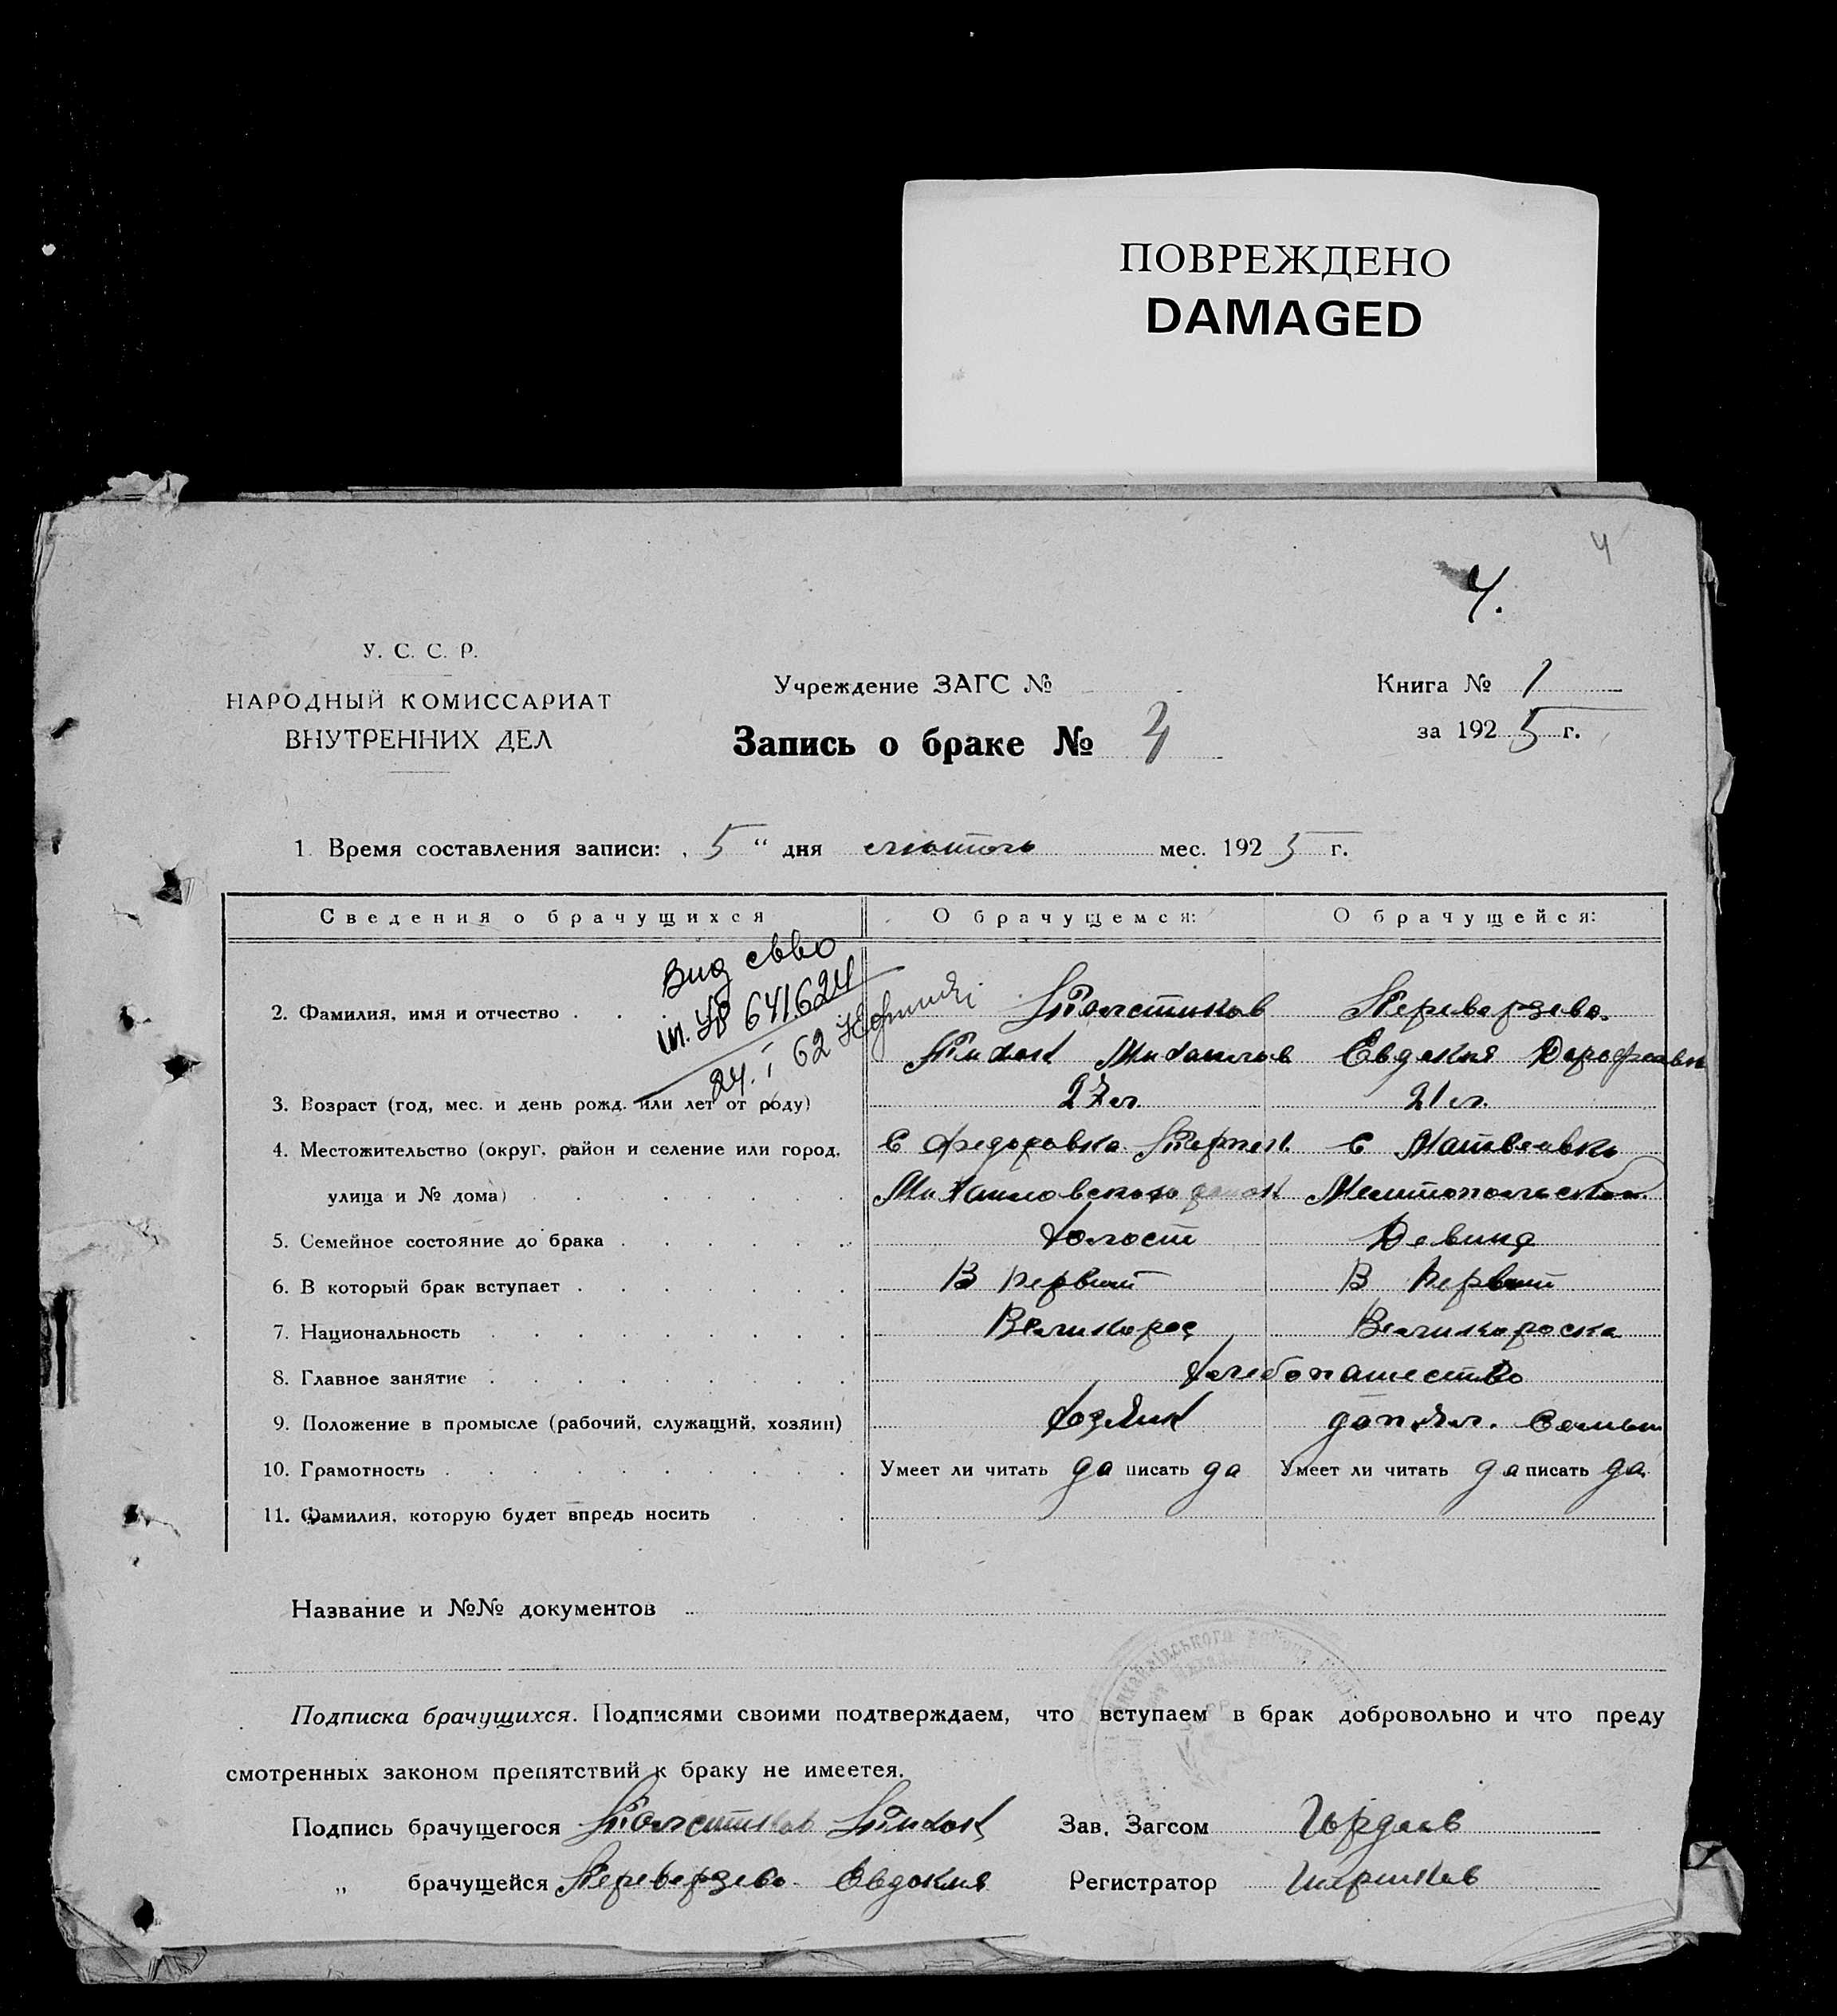 ПОВРЕЖДЕНО
DAMAGED
4
4.
У. С. С. Р.
НАРОДНЫЙ КОМИССАРИАТ
ВНУТРЕННИХ ДЕЛ
Учреждение ЗАГС №
Запись о браке № 4
Книга № 1
за 1925 г.
1. Время составления записи: „5“ дня лютого мес. 1925 г.
Сведения о брачущихся О брачущемся: О брачущейся:
Вид св-во
641624
24. I 62
2. Фамилия, имя и отчество Толстиков Переверзева.
Тихон Михайлов Евдокия Дорофеевн
3. Возраст (год, мес. и день рожд. или лет от роду) 27 л. 21 л.
4. Местожительство (округ, район и селение или город, С Федоровка С Матвеевки
улица и № дома) Михайловского Мелитопольской
5. Семейное состояние до брака Холост Девица
6. В который брак вступает В первый В первый
7. Национальность Великорос Великороска
8. Главное занятие Хлебопашество
9. Положение в промысле (рабочий, служащий, хозяин) Хозяин
10. Грамотность Умеет ли читать да писать да Умеет ли читать да писать да
11. Фамилия, которую будет впредь носить
Название и №№ документов
Подписка брачущихся. Подписями своими подтверждаем, что вступаем в брак добровольно и что преду
смотренных законом препятствий к браку не имеетея.
Подпись брачущегося Толстиков Тихон Зав. Загсом Гордеев
„ брачущейся Переверзева Евдокия Регистратор